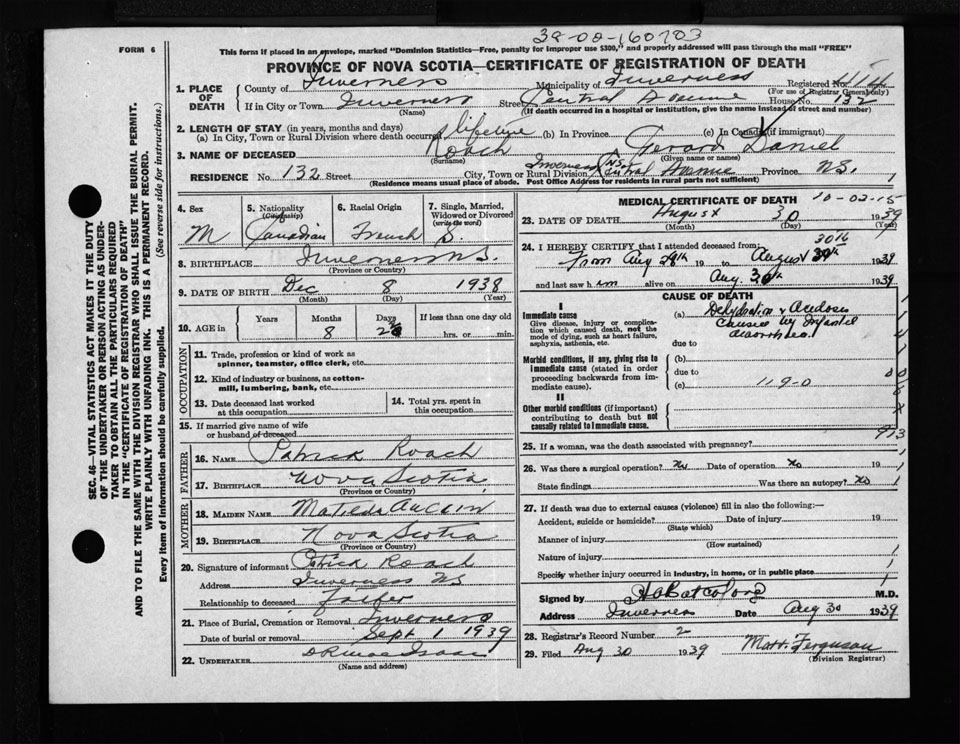 38-00-160703
FORM 6
This form if placed in an envelope, marked "Dominion Statistics—Free, penalty for improper use $300," and properly addressed will pass through the mail "FREE"
PROVINCE OF NOVA SCOTIA—CERTIFICATE OF REGISTRATION OF DEATH
SEC. 46—VITAL STATISTICS ACT MAKES IT THE DUTY
OF THE UNDERTAKER OR PERSON ACTING AS UNDER-
TAKER TO OBTAIN ALL THE PARTICULARS REQUIRED
IN THE "CERTIFICATE OF REGISTRATION OF DEATH"
AND TO FILE THE SAME WITH THE DIVISION REGISTRAR WHO SHALL ISSUE THE BURIAL PERMIT.
WRITE PLAINLY WITH UNFADING INK. THIS IS A PERMANENT RECORD.
Every item of information should be carefully supplied. (See reverse side for instructions.)
1. PLACE OF DEATH
County of Inverness Municipality of Inverness Registered No. 414
(For use of Registrar General only)
If in City or Town Inverness Street Central Avenue House No. 132
(Name) (If death occurred in a hospital or institution, give the name instead of street and number)
2. LENGTH OF STAY (in years, months and days)
(a) In City, Town or Rural Division where death occurred lifetime (b) In Province (c) In Canada (if immigrant)
3. NAME OF DECEASED Roach Gerard Daniel
(Surname) (Given name or names)
RESIDENCE No. 132 Street Central Avenue City, Town or Rural Division Inverness NS Province N.S.
(Residence means usual place of abode. Post Office Address for residents in rural parts not sufficient)
4. Sex M
5. Nationality Citizenship Canadian
6. Racial Origin French
7. Single, Married, Widowed or Divorced (write the word) S
8. BIRTHPLACE Inverness N.S.
(Province or Country)
9. DATE OF BIRTH Dec 8 1938
(Month) (Day) (Year)
10. AGE in Years Months 8 Days If less than one day old hrs. or min.
OCCUPATION
11. Trade, profession or kind of work as spinner, teamster, office clerk, etc.
12. Kind of industry or business, as cotton-mill, lumbering, bank, etc.
13. Date deceased last worked at this occupation
14. Total yrs. spent in this occupation
15. If married give name of wife or husband of deceased
FATHER
16. NAME Patrick Roach
17. BIRTHPLACE Nova Scotia
(Province or Country)
MOTHER
18. MAIDEN NAME Matilda Aucoin
19. BIRTHPLACE Nova Scotia
(Province or Country)
20. Signature of informant Patrick Roach
Address Inverness NS
Relationship to deceased Father
21. Place of Burial, Cremation or Removal Inverness
Date of burial or removal Sept 1 1939
22. UNDERTAKER
(Name and address)
MEDICAL CERTIFICATE OF DEATH 10-02-15
23. DATE OF DEATH August 30 1939
(Month) (Day) (Year)
24. I HEREBY CERTIFY that I attended deceased from:
From Aug 28th 19 to August 30th 1939
and last saw him alive on Aug 30th 1939
CAUSE OF DEATH
I
Immediate cause
Give disease, injury or complication which caused death, not the mode of dying, such as heart failure, asphyxia, asthenia, etc.
(a) Dehydration & Acidosis
Caused by Infantile
diarrhoea.
due to
Morbid conditions, if any, giving rise to immediate cause (stated in order proceeding backwards from immediate cause).
(b)
due to
(c) 119-0
II
Other morbid conditions (if important) contributing to death but not causally related to immediate cause.
913
25. If a woman, was the death associated with pregnancy?
26. Was there a surgical operation? No Date of operation No 19
State findings Was there an autopsy? No
27. If death was due to external causes (violence) fill in also the following:—
Accident, suicide or homicide? Date of injury 19
(State which)
Manner of injury
(How sustained)
Nature of injury
Specify whether injury occurred in industry, in home, or in public place
Signed by M.D.
Address Inverness Date Aug 30 1939
28. Registrar's Record Number 2
29. Filed Aug 30 1939 Matt. Ferguson
(Division Registrar)